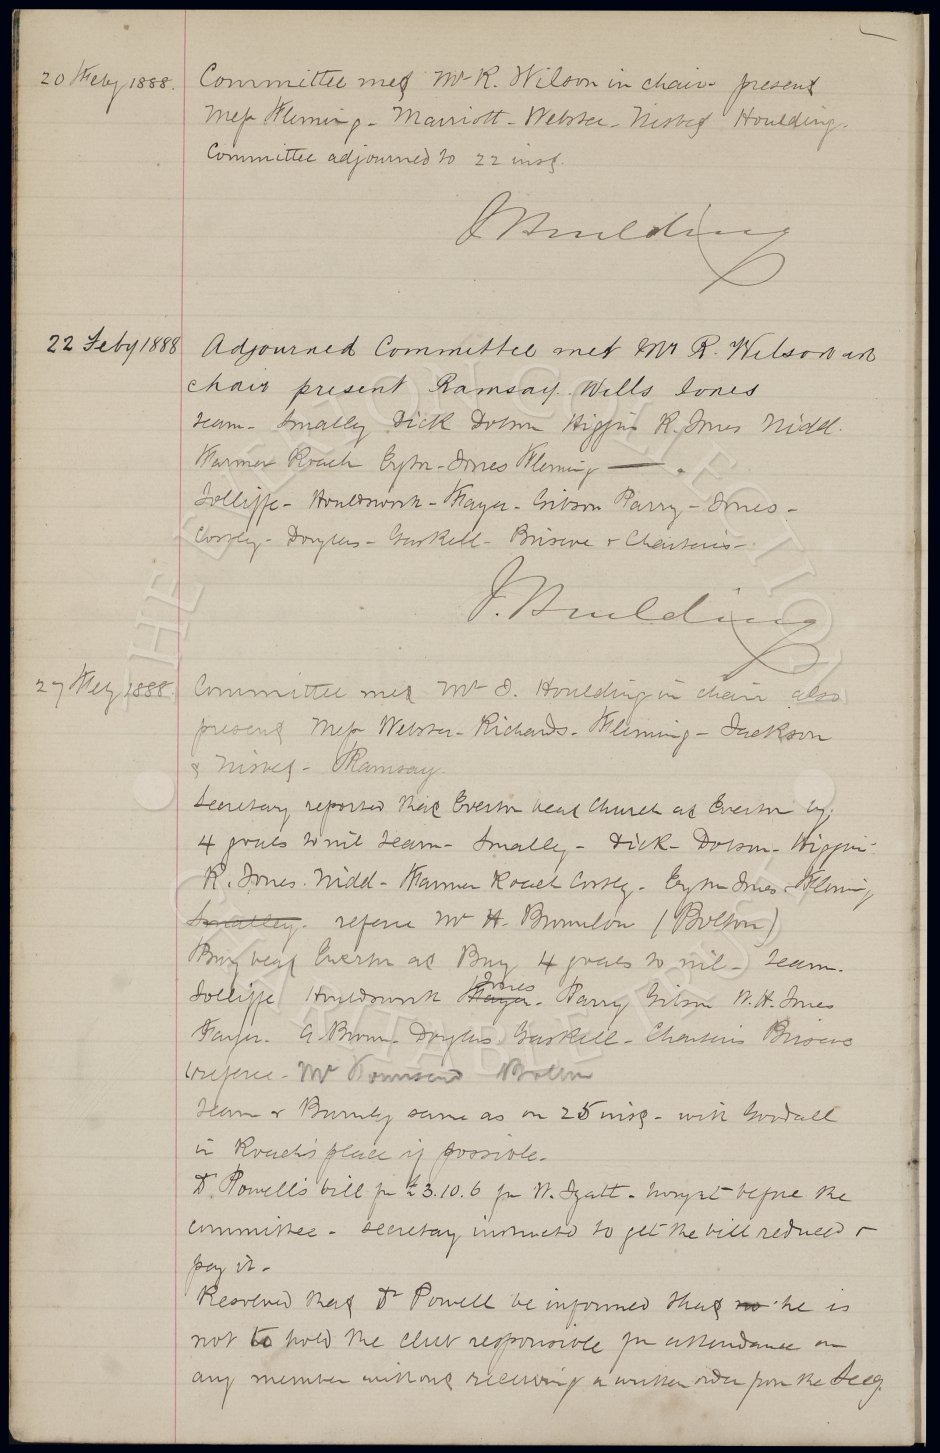 20 Feby 1888. Committee met Mr R. Wilson in chair - present
Messrs Fleming - Marriott - Webster - Nisbet Houlding.
Committee adjourned to 22 inst.
J Houlding
22 Feby 1888 Adjourned Committee met Mr R. Wilson in
chair present Ramsay. Wills Jones
Team - Smalley Dick Dobson Higgins R. Jones Nidd.
Farmer Roach Eyton-Jones Fleming — .
Jolliffe - Houldsworth - Fayer - Gibson Parry - Jones -
Costley - Douglas - Gaskell - Briscoe & Charteris -
J. Houlding
27 Feby 1888. Committee met Mr J. Houlding in chair also
present Messrs Webster - Richards - Fleming - Jackson
& Nisbet - Ramsay.
Secretary reported that Everton beat Church at Everton by
4 goals to nil team - Smalley - Dick - Dobson - Higgins
R. Jones. Nidd - Farmer Roach Costley - Eyton Jones - Fleming
Smalley. referee Mr H. Bromilow (Bolton)
Bury beat Everton at Bury 4 goals to nil - team.
Jolliffe Houldsworth Fayer Jones - Parry Gibson W. H. Jones
Fayer. A. Brown - Douglas Gaskell - Charteris Briscoe
referee - Mr Townsend Bolton
Team v Burnley same as on 25 inst - with Goodall
in Roach's place if possible -
Dr. Powell's bill for £3.10.6 for W. Izatt - brought before the
committee - secretary instructed to get the bill reduced &
pay it -
Resolved that Dr Powell be informed that no he is
not to hold the club responsible for attendance on
any member without receiving a written order from the Secy.
THE EVERTON COLLECTION
CHARITABLE TRUST